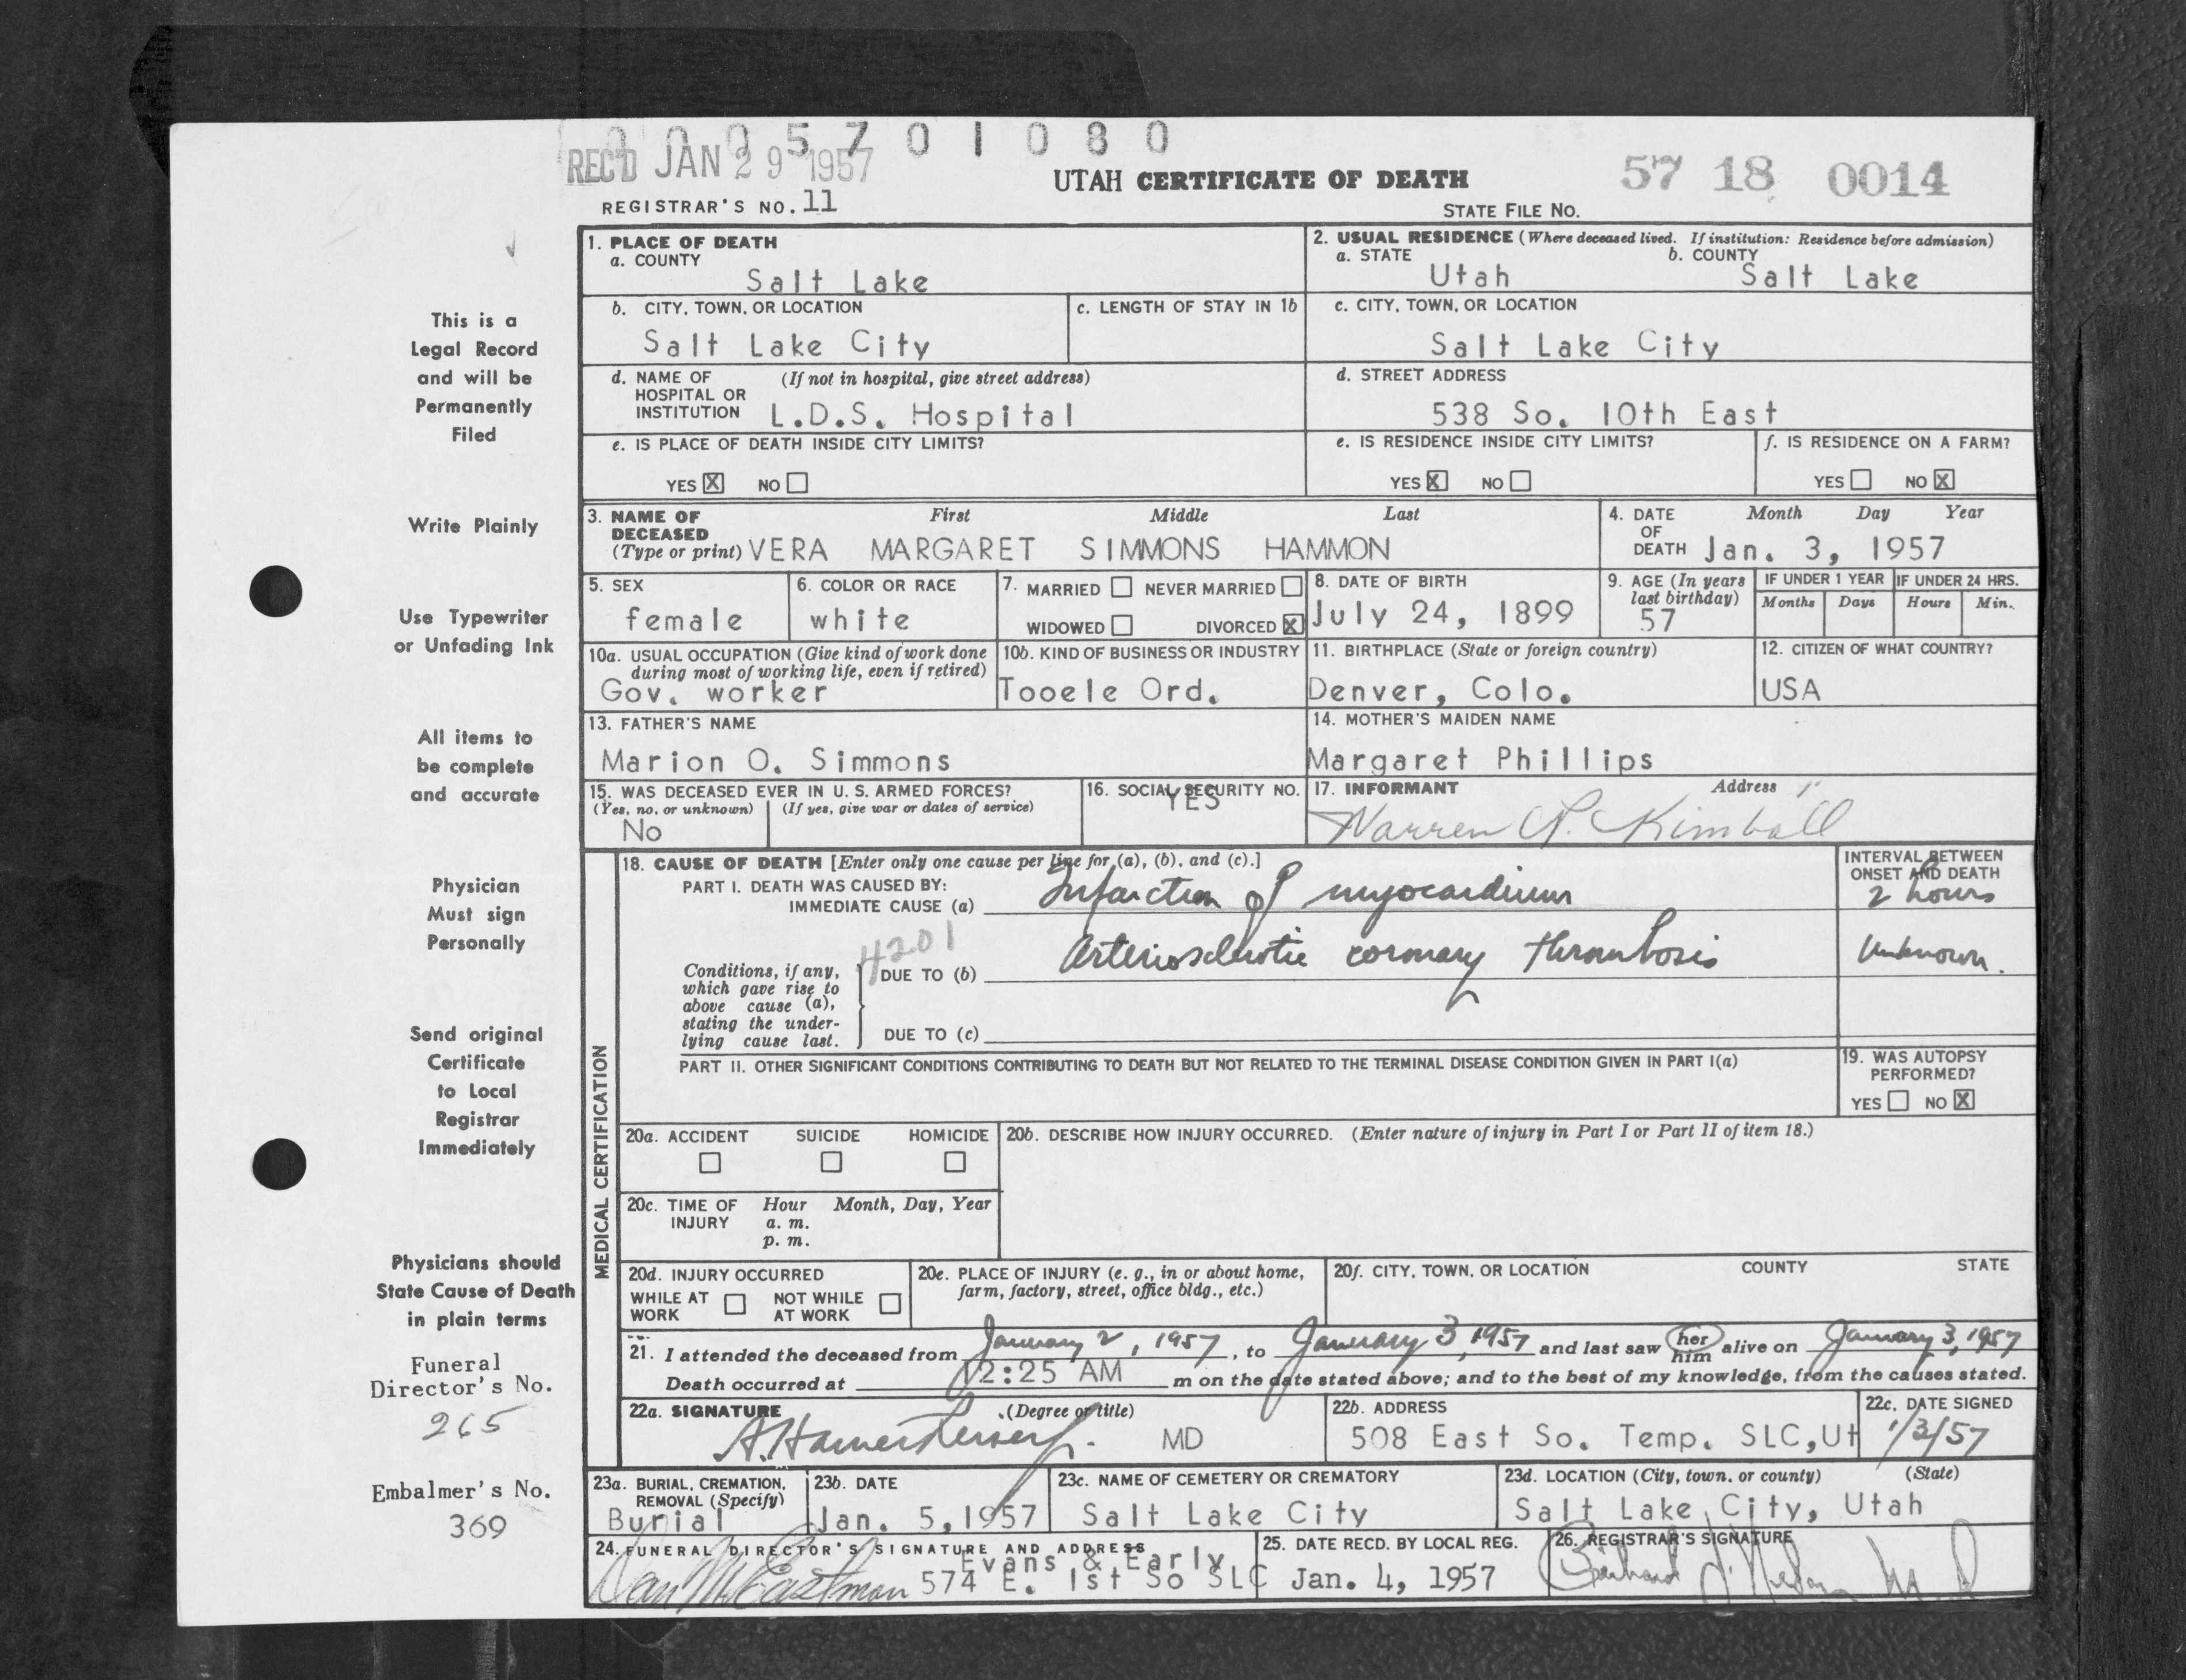 0 0 0 5 7 0 1 0 8 0
REC'D JAN 29 1957
UTAH CERTIFICATE OF DEATH
57 18 0014
REGISTRAR'S NO. 11
STATE FILE NO.
This is a
Legal Record
and will be
Permanently
Filed
Write Plainly
Use Typewriter
or Unfading Ink
All items to
be complete
and accurate
Physician
Must sign
Personally
Send original
Certificate
to Local
Registrar
Immediately
Physicians should
State Cause of Death
in plain terms
Funeral
Director's No.
265
Embalmer's No.
369
1. PLACE OF DEATH
a. COUNTY
Salt Lake
2. USUAL RESIDENCE (Where deceased lived. If institution: Residence before admission)
a. STATE b. COUNTY
Utah Salt Lake
b. CITY, TOWN, OR LOCATION
Salt Lake City
c. LENGTH OF STAY IN 1b
c. CITY, TOWN, OR LOCATION
Salt Lake City
d. NAME OF (If not in hospital, give street address)
HOSPITAL OR
INSTITUTION L.D.S. Hospital
d. STREET ADDRESS
538 So. 10th East
e. IS PLACE OF DEATH INSIDE CITY LIMITS?
YES X NO
e. IS RESIDENCE INSIDE CITY LIMITS?
YES X NO
f. IS RESIDENCE ON A FARM?
YES NO X
3. NAME OF First Middle Last
DECEASED
(Type or print) VERA MARGARET SIMMONS HAMMON
4. DATE Month Day Year
OF
DEATH Jan. 3, 1957
5. SEX
female
6. COLOR OR RACE
white
7. MARRIED NEVER MARRIED
WIDOWED DIVORCED X
8. DATE OF BIRTH
July 24, 1899
9. AGE (In years
last birthday)
57
IF UNDER 1 YEAR IF UNDER 24 HRS.
Months Days Hours Min.
10a. USUAL OCCUPATION (Give kind of work done
during most of working life, even if retired)
Gov. worker
10b. KIND OF BUSINESS OR INDUSTRY
Tooele Ord.
11. BIRTHPLACE (State or foreign country)
Denver, Colo.
12. CITIZEN OF WHAT COUNTRY?
USA
13. FATHER'S NAME
Marion O. Simmons
14. MOTHER'S MAIDEN NAME
Margaret Phillips
15. WAS DECEASED EVER IN U. S. ARMED FORCES?
(Yes, no, or unknown) (If yes, give war or dates of service)
No
16. SOCIAL SECURITY NO.
YES
17. INFORMANT Address
Warren P. Kimball
MEDICAL CERTIFICATION
18. CAUSE OF DEATH [Enter only one cause per line for (a), (b), and (c).]
PART I. DEATH WAS CAUSED BY:
IMMEDIATE CAUSE (a) Infarction of myocardium
INTERVAL BETWEEN
ONSET AND DEATH
2 hours
4201
Conditions, if any,
which gave rise to
above cause (a),
stating the under-
lying cause last.
DUE TO (b) Arteriosclerotic coronary thrombosis
Unknown.
DUE TO (c)
PART II. OTHER SIGNIFICANT CONDITIONS CONTRIBUTING TO DEATH BUT NOT RELATED TO THE TERMINAL DISEASE CONDITION GIVEN IN PART I(a)
19. WAS AUTOPSY
PERFORMED?
YES NO X
20a. ACCIDENT SUICIDE HOMICIDE
20b. DESCRIBE HOW INJURY OCCURRED. (Enter nature of injury in Part I or Part II of item 18.)
20c. TIME OF Hour Month, Day, Year
INJURY a. m.
p. m.
20d. INJURY OCCURRED
WHILE AT NOT WHILE
WORK AT WORK
20e. PLACE OF INJURY (e. g., in or about home,
farm, factory, street, office bldg., etc.)
20f. CITY, TOWN, OR LOCATION COUNTY STATE
21. I attended the deceased from January 2, 1957, to January 3, 1957 and last saw her him alive on January 3, 1957
Death occurred at 12:25 AM m on the date stated above; and to the best of my knowledge, from the causes stated.
22a. SIGNATURE (Degree or title)
MD
22b. ADDRESS
508 East So. Temp. SLC, Ut
22c. DATE SIGNED
1/3/57
23a. BURIAL, CREMATION,
REMOVAL (Specify)
Burial
23b. DATE
Jan. 5, 1957
23c. NAME OF CEMETERY OR CREMATORY
Salt Lake City
23d. LOCATION (City, town, or county) (State)
Salt Lake City, Utah
24. FUNERAL DIRECTOR'S SIGNATURE AND ADDRESS
Evans & Early
Dan M. Eastman 574 E. 1st So SLC
25. DATE RECD. BY LOCAL REG.
Jan. 4, 1957
26. REGISTRAR'S SIGNATURE